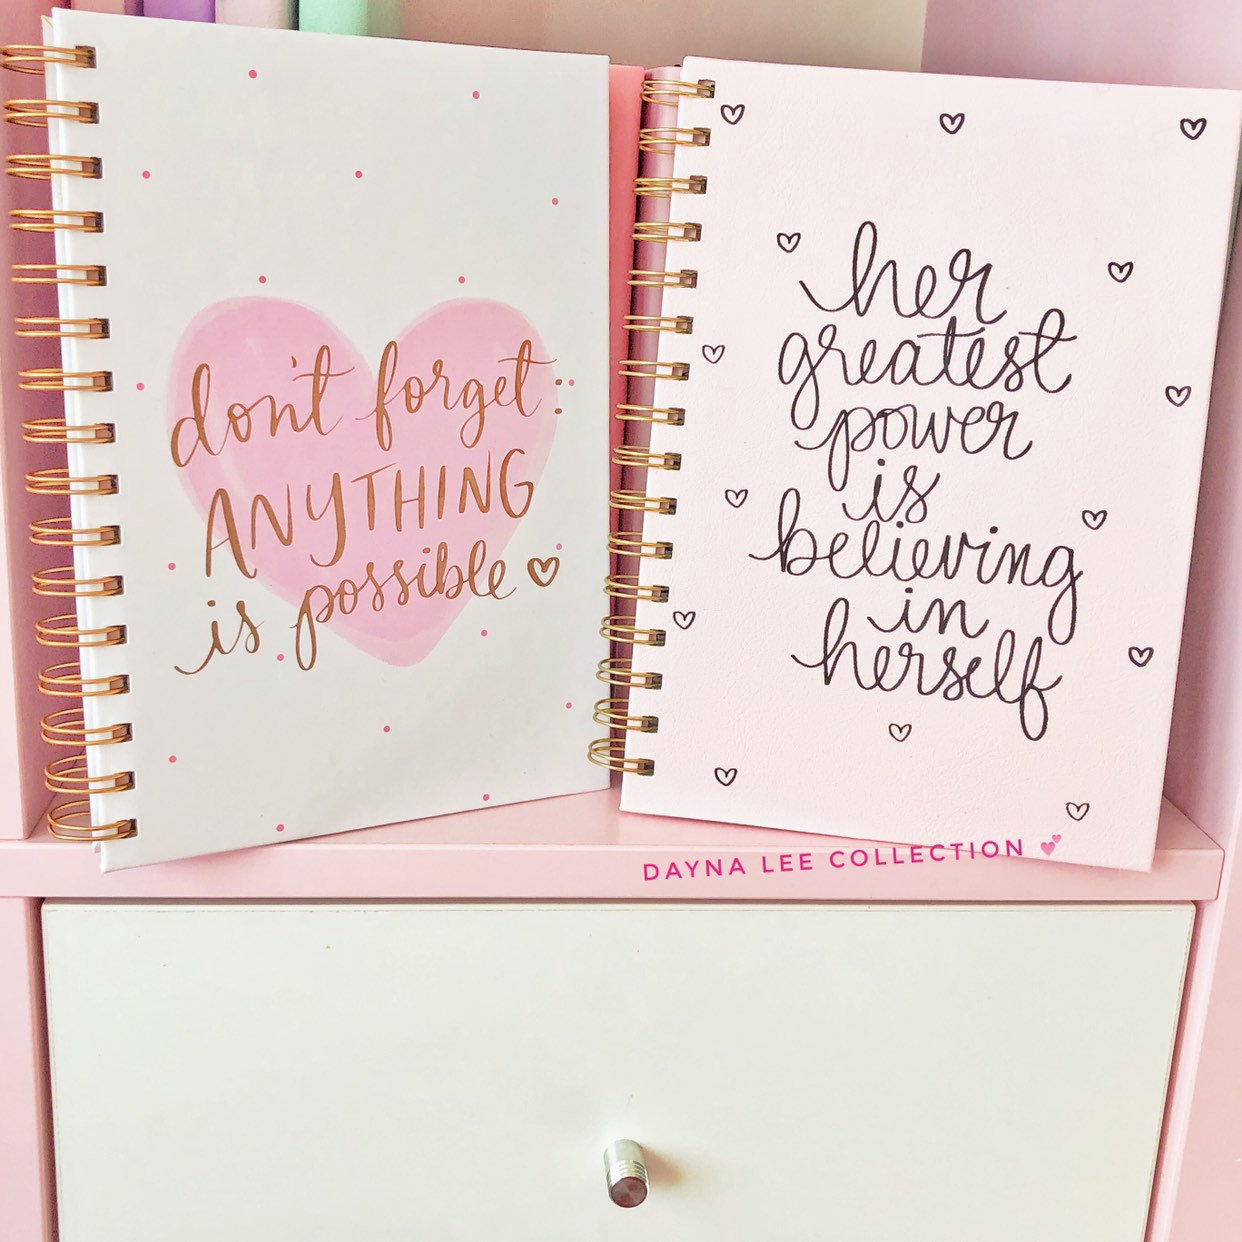 don't forget:
ANYTHING
is possible
her
greatest
power
is
believing
in
herself
DAYNA LEE COLLECTION